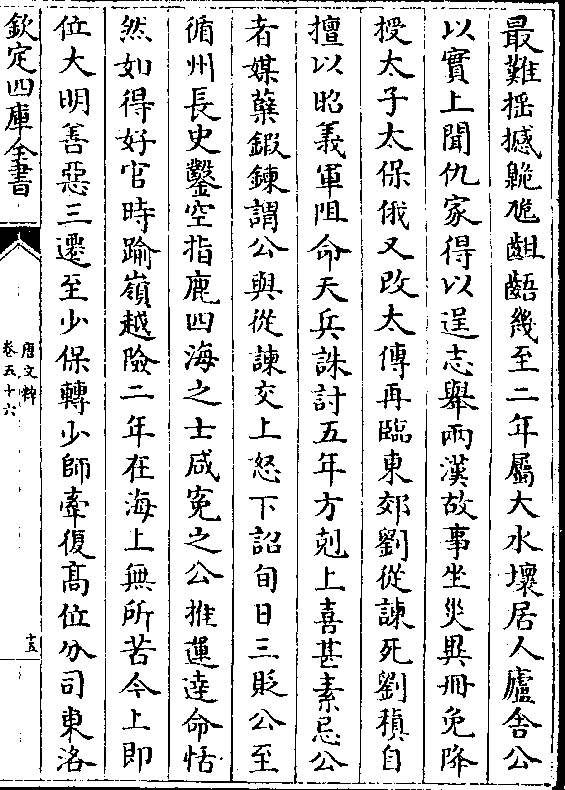 最難揺撼臲卼齟齬幾至二年屬大水壞居人廬舎公
以實上聞仇家得以逞志舉兩漢故事坐災異冊免降
授太子太保俄又改太傅再臨東郊劉從諫死劉稹自
擅以昭義軍阻命天兵誅討五年方剋上喜甚素忌公
者媒糵鍛鍊謂公與從諫交上怒下詔旬日三貶公至
循州長史鑿空指鹿四海之士咸寃之公推運達命恬
然如得好官時踰嶺越險二年在海上無所苦今上即
位大明善惡三遷至少保轉少師牽復高位分司東洛
欽定四庫全書
唐文粹
卷五十六
十五